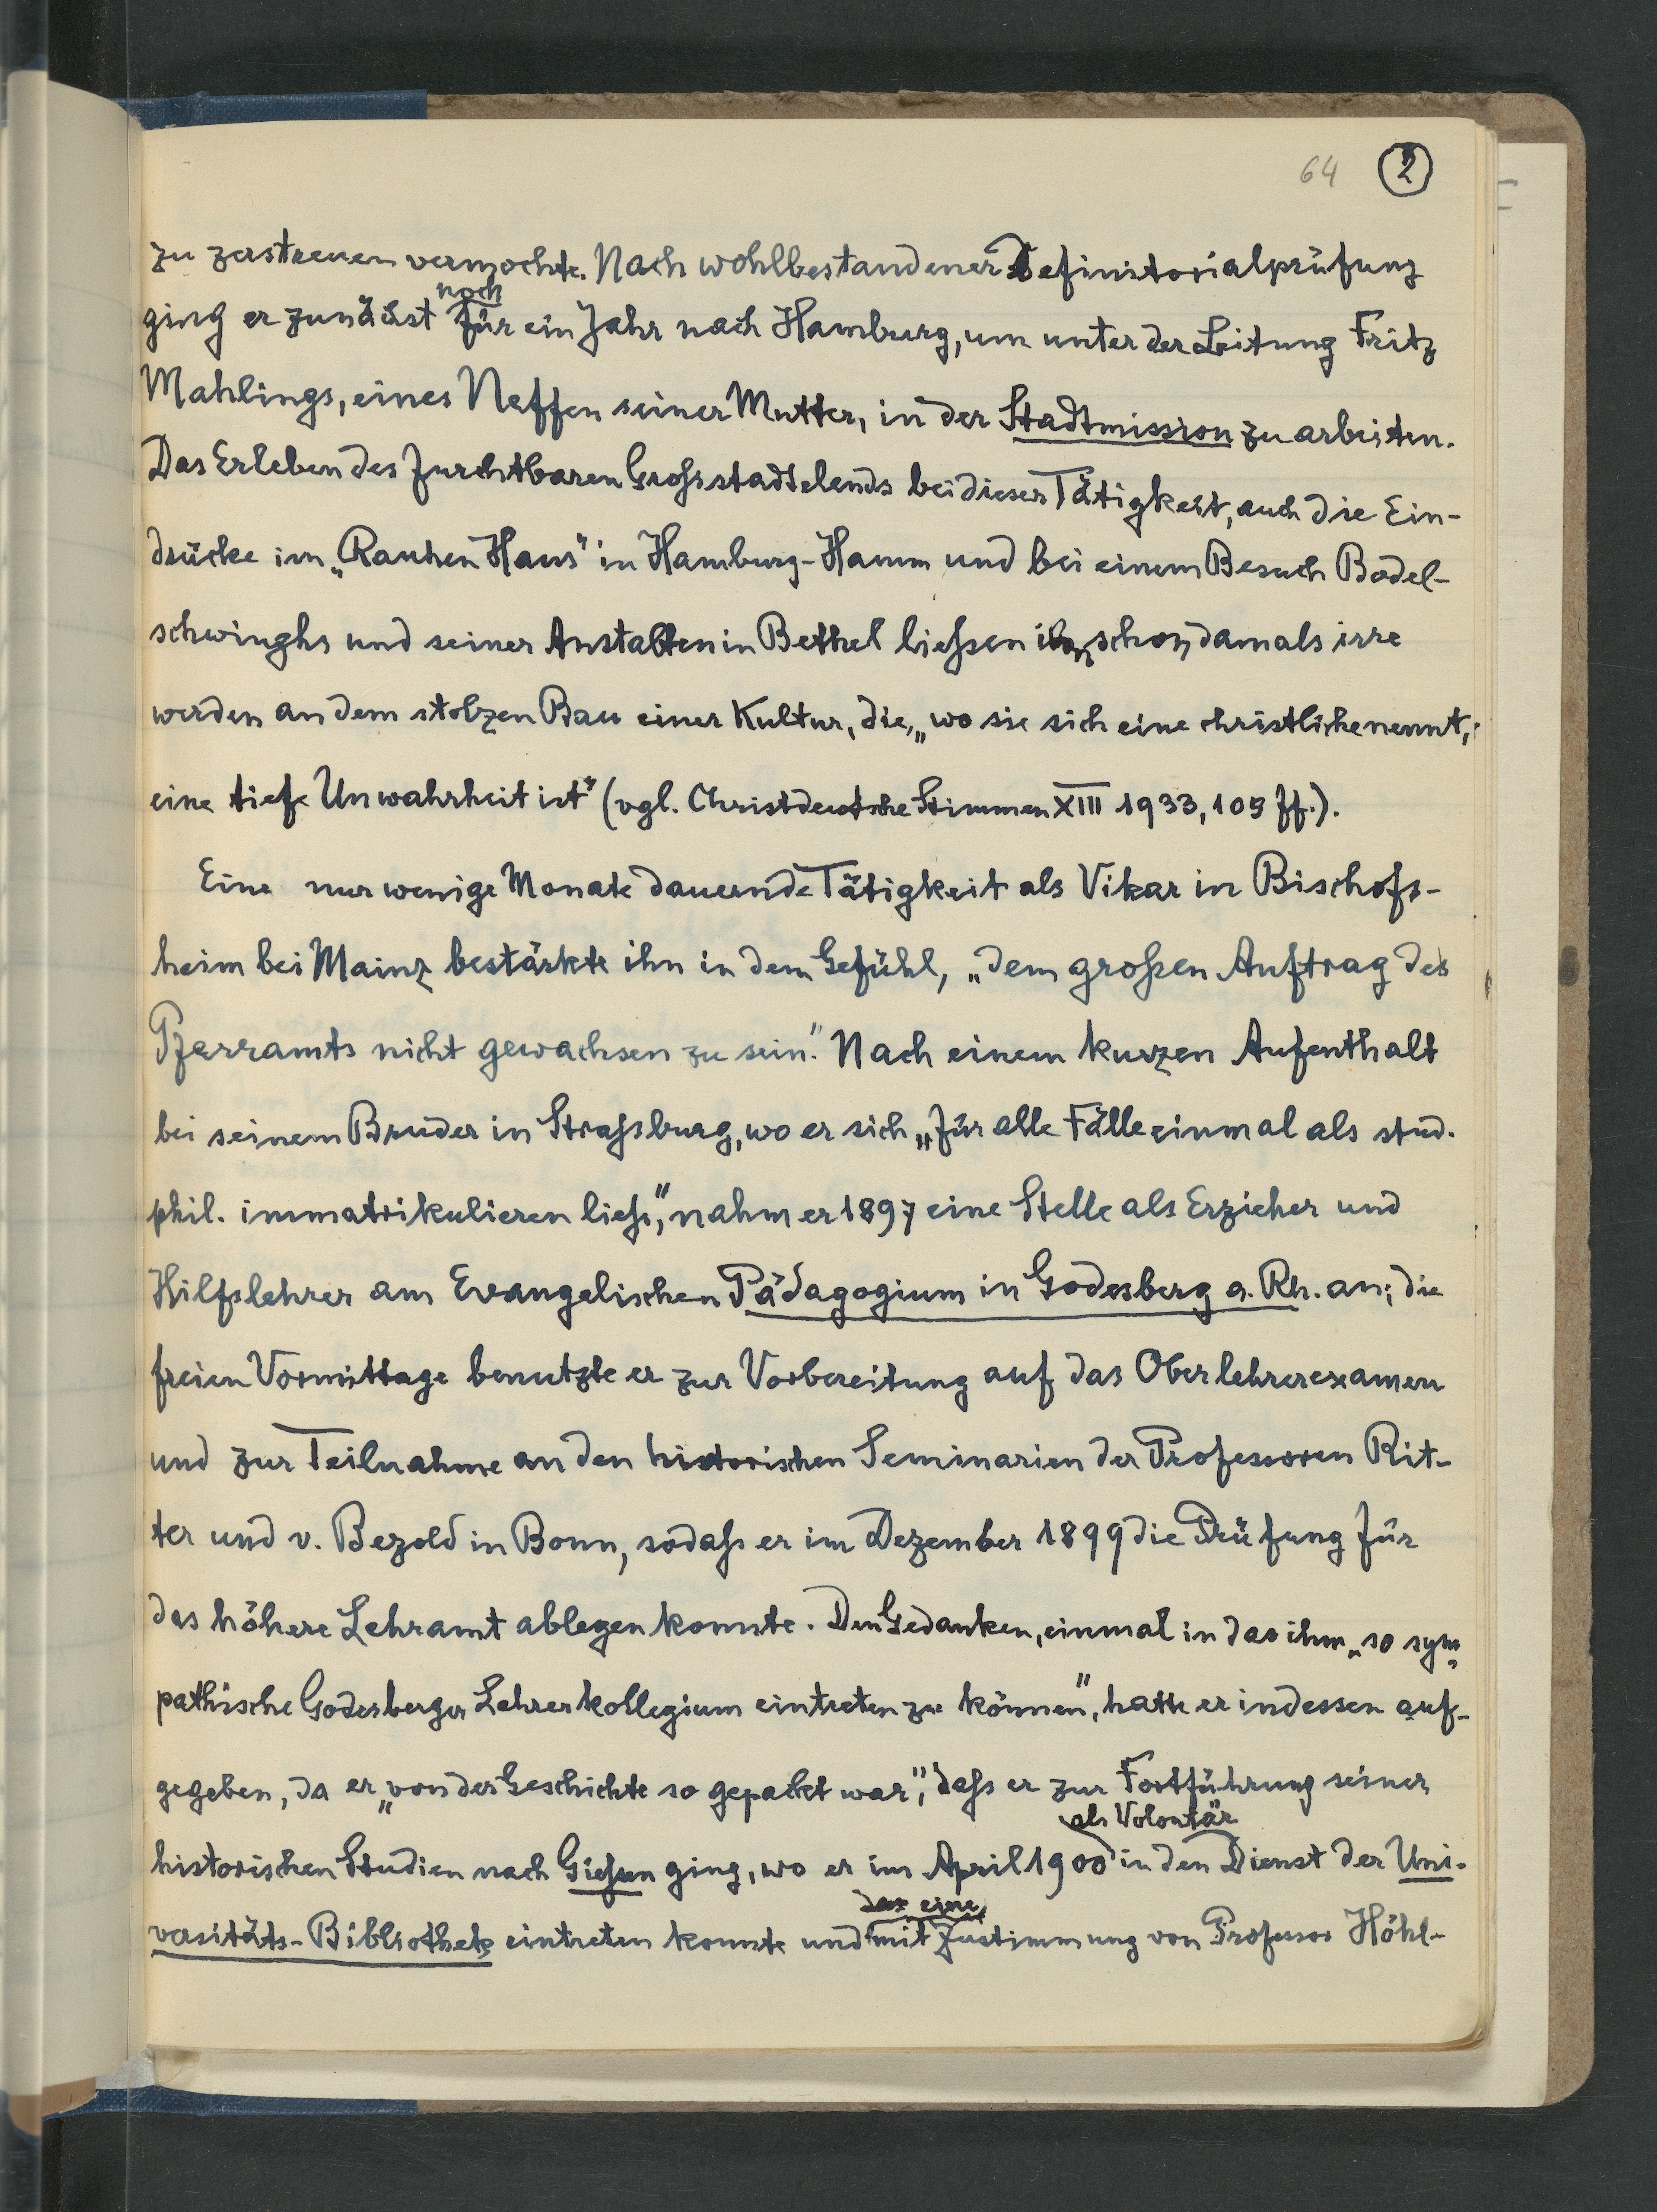 64 2
zu zerstreuen vermochte. Nach wohlbestandener Definitorialprüfung
noch
ging er zunächst für ein Jahr nach Hamburg, um unter der Leitung Fritz
Mahlings, eines Neffen seiner Mutter, in der Stadtmission zu arbeiten.
Das Erleben des furchtbaren Grossstadtelends bei dieser Tätigkeit, auch die Ein-
drücke im „Rauhen Haus" in Hamburg-Hamm und bei einem Besuch Bodel-
schwinghs und seiner Anstalten in Bethel liessen ihn schon damals irre
werden an dem stolzen Bau einer Kultur, die, „wo sie sich eine christliche nennt,
eine tiefe Unwahrheit ist" (vgl. Christdeutsche Stimmen XIII 1933, 109 ff.).
Eine nur wenige Monate dauernde Tätigkeit als Vikar in Bischofs-
heim bei Mainz bestärkte ihn in dem Gefühl, „dem grossen Auftrag des
Pfarramts nicht gewachsen zu sein." Nach einem kurzen Aufenthalt
bei seinem Bruder in Strassburg, wo er sich „für alle Fälle einmal als stud.
phil. immatrikulieren liess", nahm er 1897 eine Stelle als Erzieher und
Hilfslehrer am Evangelischen Pädagogium in Godesberg a. Rh. an; die
freien Vormittage benutzte er zur Vorbereitung auf das Oberlehrerexamen
und zur Teilnahme an den historischen Seminarien der Professoren Rit-
ter und v. Bezold in Bonn, sodass er im Dezember 1899 die Prüfung für
das höhere Lehramt ablegen konnte. Den Gedanken, einmal in das ihm „so sym-
pathische Godesberger Lehrerkollegium eintreten zu können", hatte er indessen auf-
gegeben, da er „von der Geschichte so gepackt war", dass er zur Fortführung seiner
als Volontär
historischen Studien nach Giessen ging, wo er im April 1900 in den Dienst der Uni-
versitäts-Bibliothek eintreten konnte und mit Zustimmung von Professor Höhl-